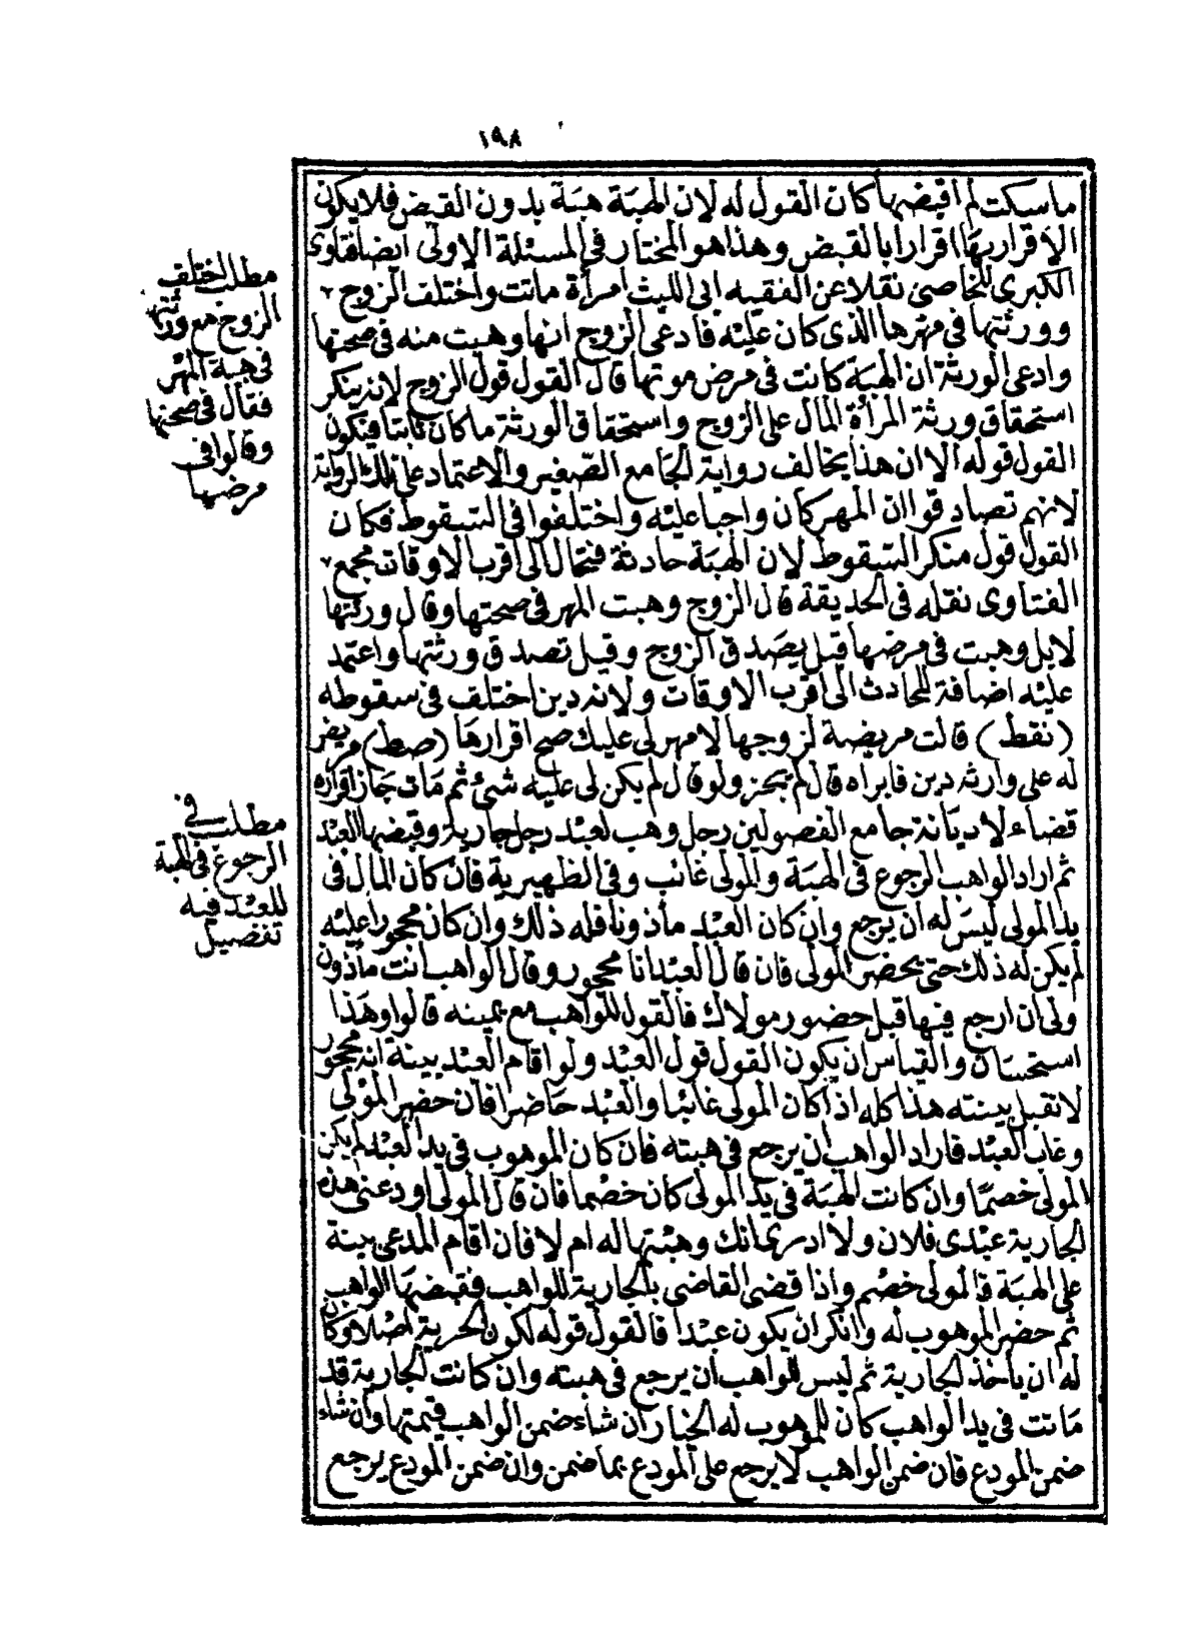 ١٩٨
ما سكت لم اقبضها كان القول له لان الهبة هبة بدون القبض فلا يكون
الاقرار بها اقرارا بالقبض وهذا هو المختار في المسئلة الاولى ايضا فتاوى
الكبرى للخاصى نقلا عن الفقيه ابى الليث امرأة ماتت واختلف الزوج
وورثتها فى مهرها الذى كان عليه فادعى الزوج انها وهبت منه فى صحتها
وادعى الورثة ان الهبة كانت فى مرض موتها قال القول قول الزوج لانه ينكر
استحقاق ورثة المرأة المال على الزوج واستحقاق الورثة ما كان ثابتا فيكون
القول قوله الا ان هذا يخالف رواية الجامع الصغير والاعتماد على تلك الرواية
لانهم تصادقوا ان المهر كان واجبا عليه واختلفوا فى السقوط فكان
القول قول منكر السقوط لان الهبة حادثة فتحال الى اقرب الاوقات مجمع
الفتاوى نقله فى الحديقة قال الزوج وهبت المهر فى صحتها وقال ورثتها
لا بل وهبت فى مرضها قيل يصدق الزوج وقيل تصدق ورثتها واعتمد
عليه اضافة للحادث الى اقرب الاوقات ولانه دين اختلف فى سقوطه
(نقط) قالت مريضة لزوجها لا مهر لى عليك صح اقرارها (صط) مريض
له على وارثه دين فابراه قال لم يجز ولو قال لم يكن لى عليه شئ ثم مات جاز اقراره
قضاء لا ديانة جامع الفصولين رجل وهب لعبد رجل جارية وقبضها العبد
ثم اراد الواهب الرجوع فى الهبة والمولى غائب وفى الظهيرية فان كان المال فى
يد المولى ليس له ان يرجع وان كان العبد مأذونا فله ذلك وان كان محجورا عليه
لم يكن له ذلك حتى يحضر المولى فان قال العبد انا محجور وقال الواهب انت مأذون
ولى ان ارجع فيها قبل حضور مولاك فالقول للواهب مع يمينه قالوا وهذا
استحسان والقياس ان يكون القول قول العبد ولو اقام العبد بينة انه محجور
لا تقبل بينته هذا كله اذا كان المولى غائبا والعبد حاضرا فان حضر المولى
وغاب العبد فاراد الواهب ان يرجع فى هبته فان كان الموهوب فى يد العبد لم يكن
المولى خصما وان كانت الهبة فى يد المولى كان خصما فان قال المولى اودعنى هذه
الجارية عبدى فلان ولا ادرى انك وهبتها له ام لا فان اقام المدعى بينة
على الهبة فالمولى خصم واذا قضى القاضى بالجارية للواهب فقبضها الواهب
ثم حضر الموهوب له وانكر ان يكون عبدا فالقول قوله لكون الحرية اصلا وكان
له ان ياخذ الجارية ثم ليس للواهب ان يرجع فى هبته وان كانت الجارية قد
ماتت فى يد الواهب كان للموهوب له الخيار ان شاء ضمن الواهب قيمتها وان شاء
ضمن المودع فان ضمن الواهب لا يرجع على المودع بما ضمن وان ضمن المودع يرجع
مطلب اختلف
الزوج مع ورثتها
فى هبة المهر
فقال فى صحتها
وقالوا فى
مرضها
مطلب فى
الرجوع فى الهبة
للعبد فيه
تفصيل